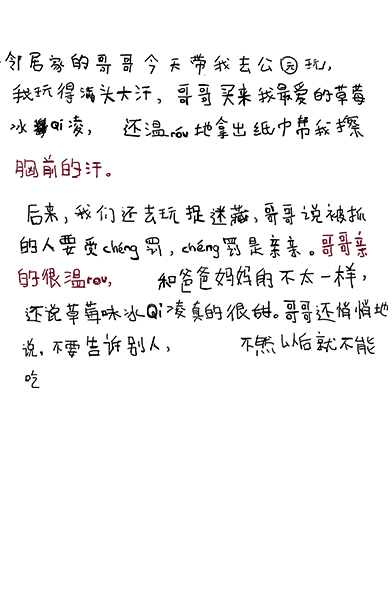 邻居家的哥哥今天带我去公元玩,
我玩得满头大汗,哥哥买来我最爱的草莓
冰Qi凌,还温róu地拿出纸巾帮我擦
胸前的汗。
后来,我们还去玩捉迷藏,哥哥说被抓
的人要受chéng罚,chéng罚是亲亲。哥哥亲
的很温rou,和爸爸妈妈的不太一样,
还说草莓味冰Qi凌真的很甜。哥哥还悄悄地
说,不要告诉别人,不然以后就不能
吃